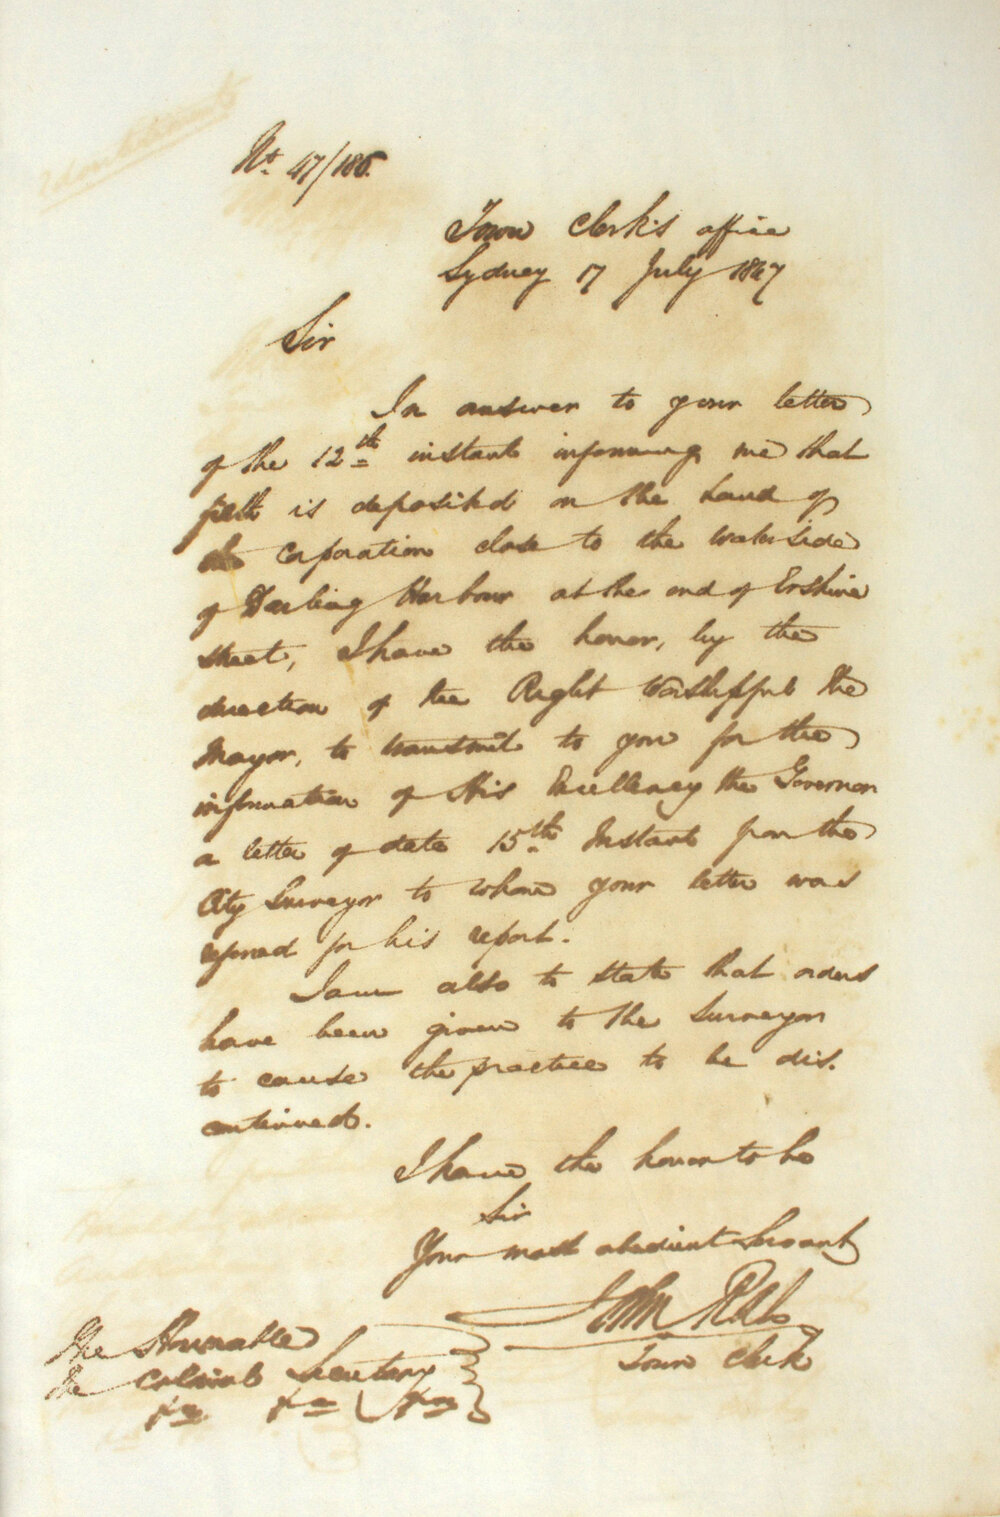 No. 47/186.
Town Clerk's office
Sydney 17 July 1847
Sir
In answer to your letter
of the 12th instant informing me that
filth is deposited on the Land of
the Corporation close to the waterside
of Darling Harbour at the end of Erskine
street, I have the honor, by the
direction of the Right Worshipful the
Mayor, to transmit to you for the
information of His Excellency the Governor
a letter of date 15th Instant from the
City Surveyor to whom your letter was
referred for his report.
I am also to state that orders
have been given to the Surveyor
to cause the practice to be dis.
continued.
I have the honor to be
Sir
Your most obedient Servant
John Rae
Town Clerk
The Honorable
The Colonial Secretary
&c &c &c